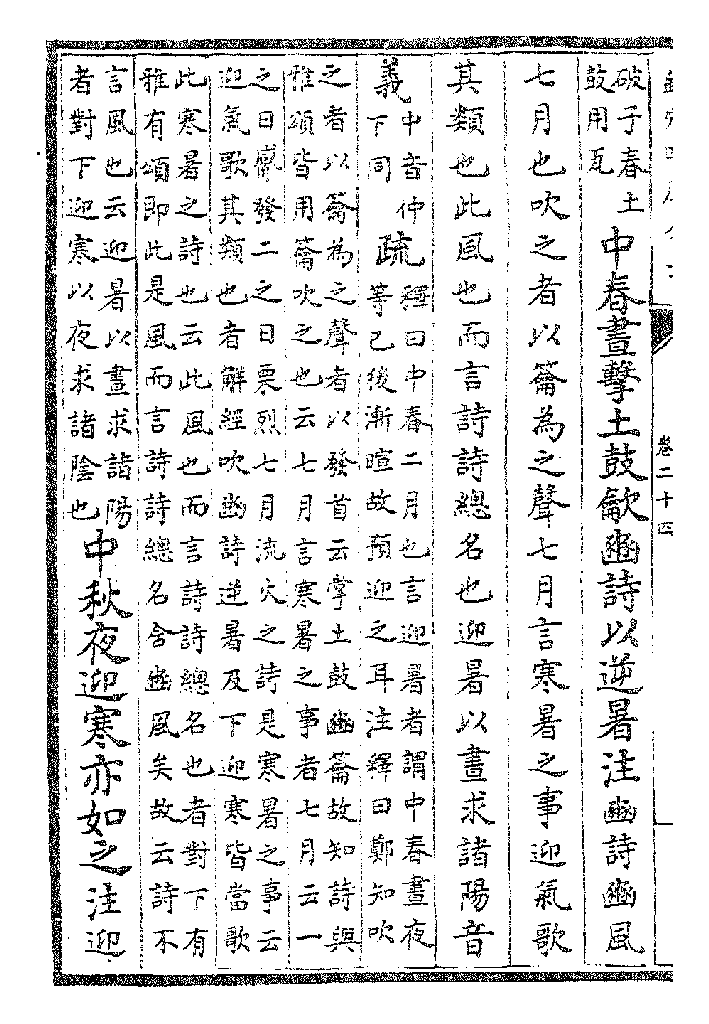 卷二十四
破子春土
鼓用瓦
中春晝擊土鼓龡豳詩以逆暑注豳詩豳風
七月也吹之者以籥為之聲七月言寒暑之事迎氣歌
其類也此風也而言詩詩總名也迎暑以晝求諸陽音
義
中音仲
下同
疏
釋曰中春二月也言迎暑者謂中春晝夜
等已後漸暄故預迎之耳注釋曰鄭知吹
之者以籥為之聲者以發首云掌土鼓豳籥故知詩與
雅頌皆用籥吹之也云七月言寒暑之事者七月云一
之日觱發二之日栗烈七月流火之詩是寒暑之事云
迎氣歌其類也者解經吹豳詩逆暑及下迎寒皆當歌
此寒暑之詩也云此風也而言詩詩總名也者對下有
雅有頌即此是風而言詩詩總名含豳風矣故云詩不
言風也云迎暑以晝求諸陽
者對下迎寒以夜求諸陰也
中秋夜迎寒亦如之注迎